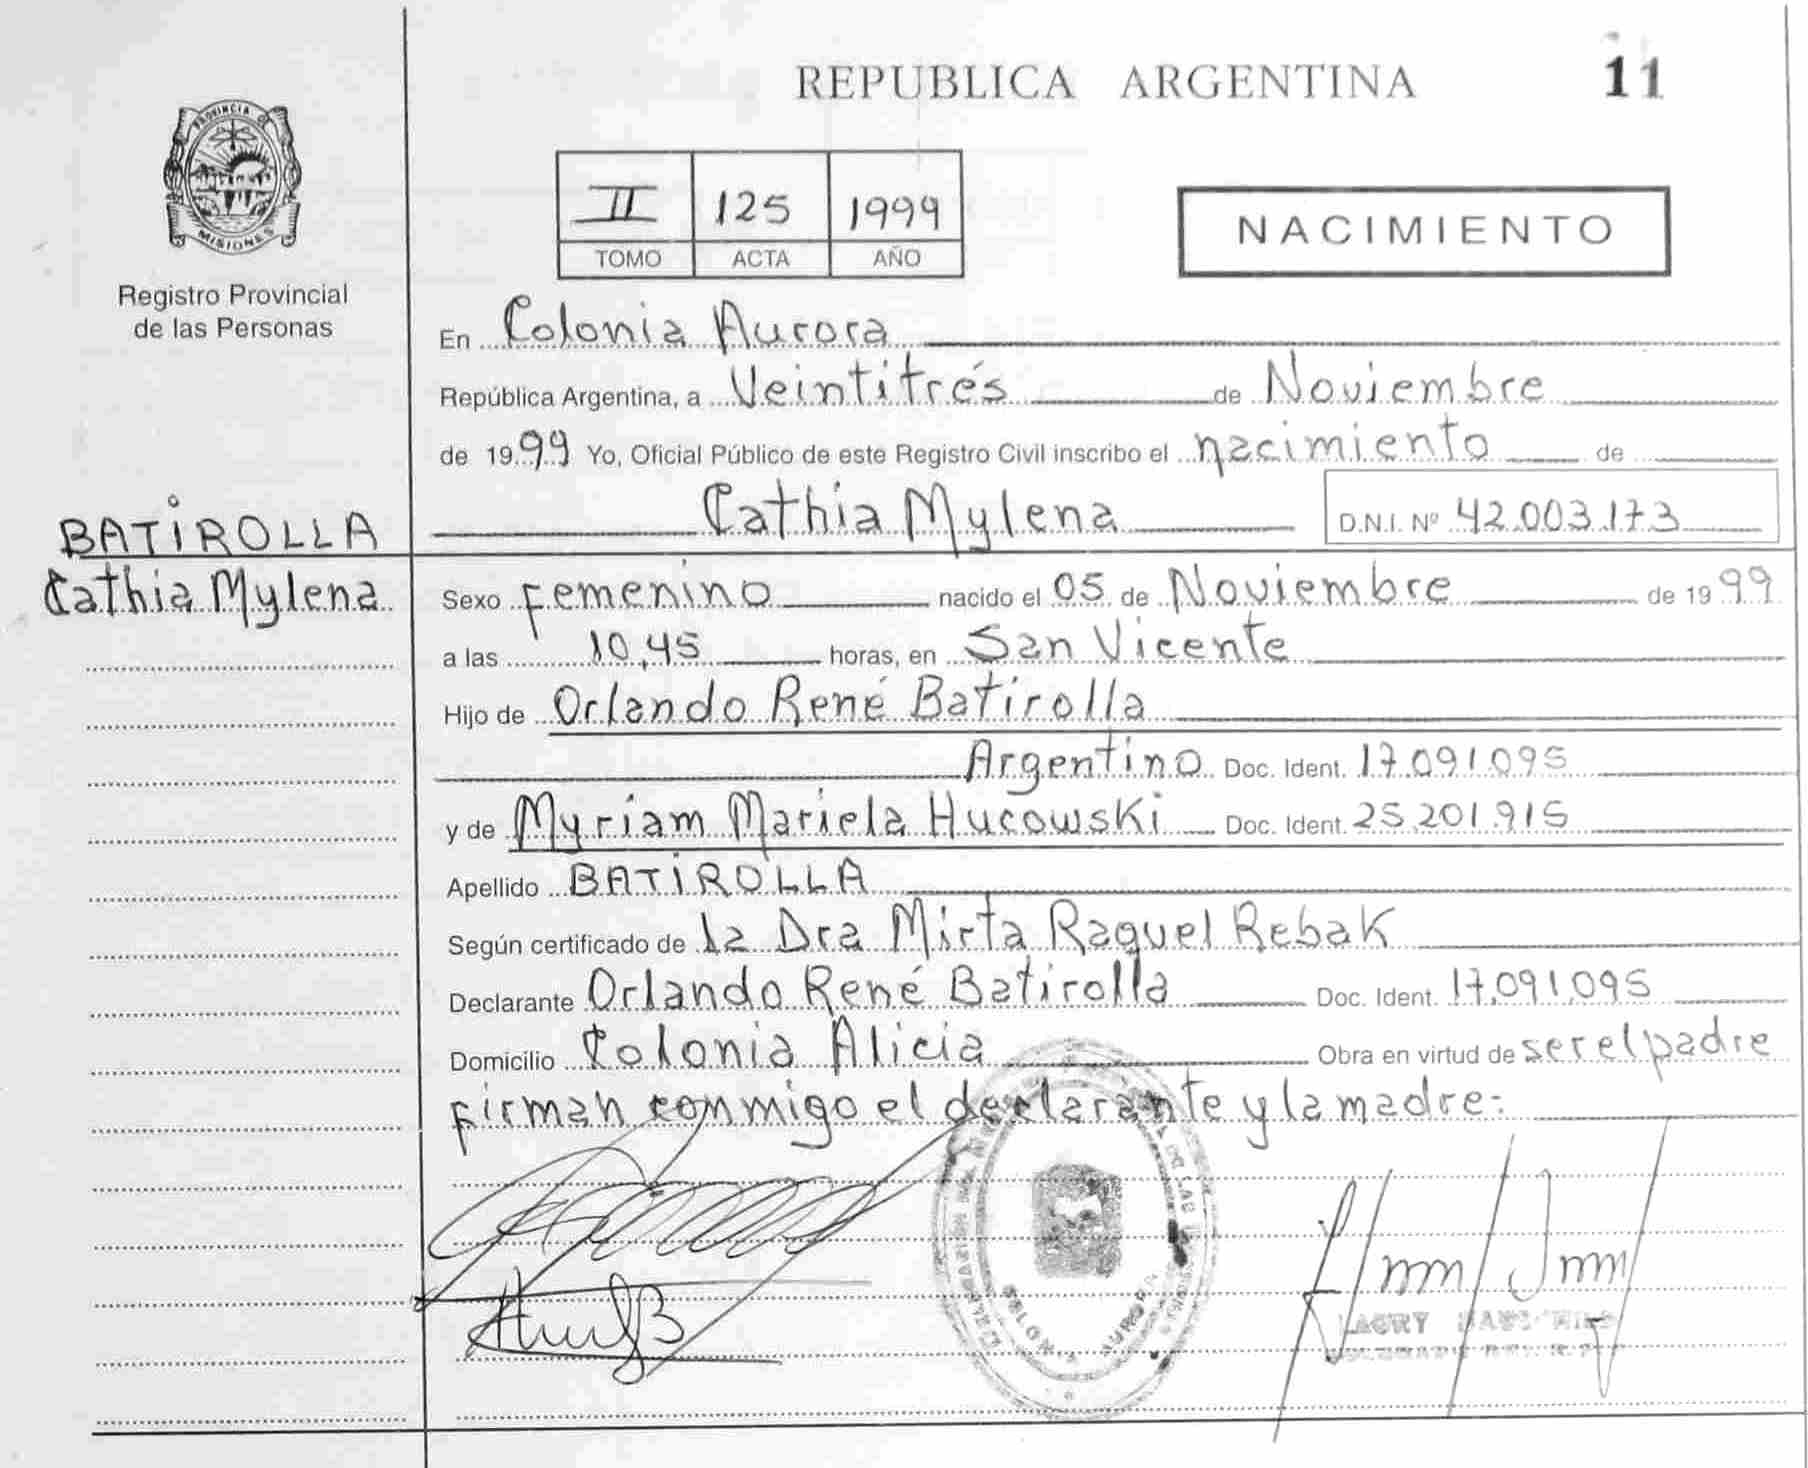 REPUBLICA ARGENTINA 11
PROVINCIA DE
MISIONES
Registro Provincial
de las Personas
II 125 1999
TOMO ACTA AÑO
NACIMIENTO
En Colonia Aurora
República Argentina, a Veintitrés de Noviembre
de 1999 Yo, Oficial Público de este Registro Civil inscribo el nacimiento de
Cathia Mylena D.N.I. Nº 42.003.173
BATIROLLA
Cathia Mylena
Sexo Femenino nacido el 05 de Noviembre de 1999
a las 10,45 horas, en San Vicente
Hijo de Orlando René Batirolla
Argentino Doc. Ident. 17.091.095
y de Myriam Mariela Hucowski Doc. Ident. 25.201.915
Apellido BATIROLLA
Según certificado de la Dra Mirta Raquel Rebak
Declarante Orlando René Batirolla Doc. Ident. 17.091.095
Domicilio Colonia Alicia Obra en virtud de ser el padre
Firman conmigo el declarante y la madre:
COLONIA AURORA